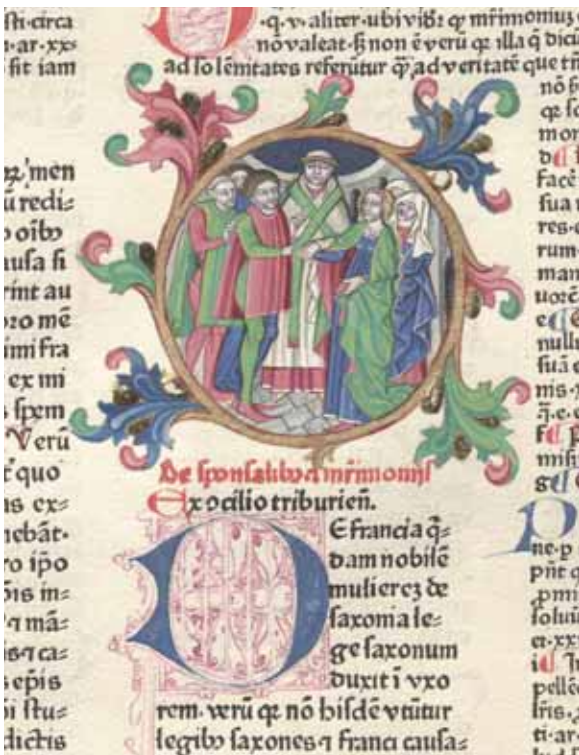 sti·circa
n·ar·xx⸗
fit iam
men
ū redi⸗
oībꝫ
ausa fi
rint au
oro mē
imi fra
ex mi
spem
Verū
quo
as ex⸗
nebāt·
ro ip̄o
ꝓis in⸗
⁊ mā⸗
⁊ ca⸗
ep̄is
stu⸗
dictis
·q. v· aliter·ubi vīdꝫ ꝙ mr̄imoniuꝫ
nō valeat·ſꝫ non ē verū qꝛ illa q̄ dicū
ad ſolēnitates referūtur ꝙ ad veritatē que tn̄
De ſponſalibꝫ ⁊ mr̄imonijſ
Ex ↄcilio triburieñ.
DE francia q̄⸗
dam nobilē
mulierēꝫ de
ſaxonia le⸗
ge ſaxonum
duxit ī vxo
rem· verū qꝛ nō hiſdē vtūtur
legibꝫ ſaxones ⁊ franci cauſa⸗
nō
mor
facē
ſua
res·
rum·
man
uorē
null
ſuā
nis·
miſ
ne·p
pn̄t
ꝓmi
ſolui
et·xx
pellē
ti·ar·